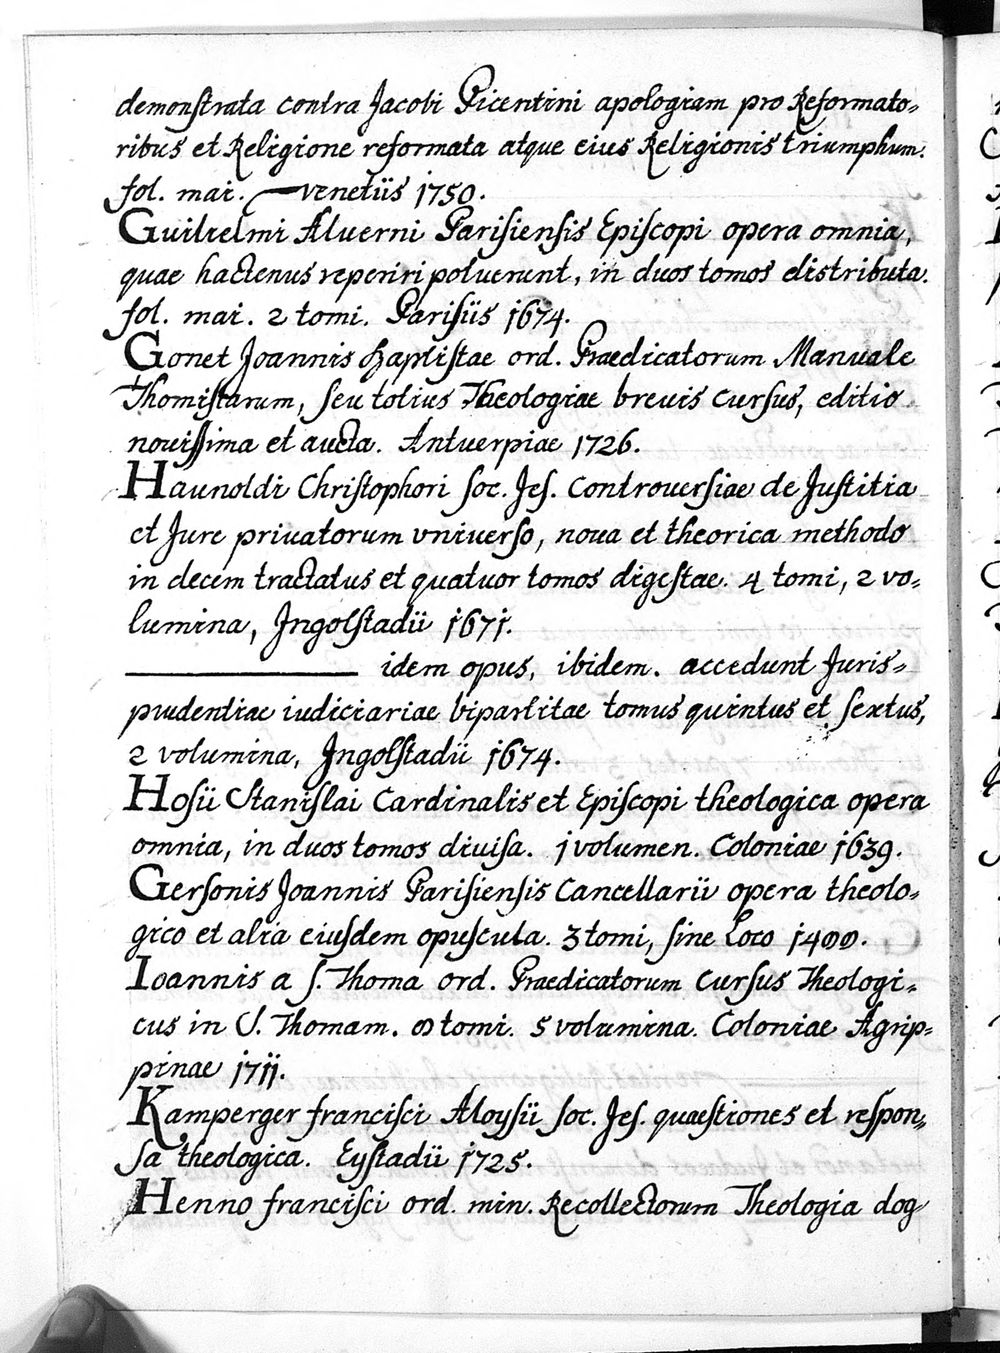 demonstrata contra Jacobi Picentini apologiam pro Reformato-
ribus et Religione reformata atque eius Religionis triumphum.
fol. mai. — venetiis 1750.
Guilielmi Aluerni Parisiensis Episcopi opera omnia,
quae hactenus reperiri potuerunt, in duos tomos distributa.
fol. mai. 2 tomi. Parisiis 1674.
Gonet Joannis Baptistae ord. Praedicatorum Manuale
Thomistarum, seu totius Theologiae breuis cursus, editio
nouissima et aucta. Antuerpiae 1726.
Haunoldi Christophori soc. Jes. Controuersiae de Justitia
et Jure priuatorum vniuerso, noua et theorica methodo
in decem tractatus et quatuor tomos digestae. 4 tomi, 2 vo-
lumina, Jngolstadii 1671.
——— idem opus, ibidem. accedunt Juris-
prudentiae iudiciariae bipartitae tomus quintus et sextus,
2 volumina, Jngolstadii 1674.
Hosii Stanislai Cardinalis et Episcopi theologica opera
omnia, in duos tomos diuisa. 1 volumen. Coloniae 1639.
Gersonis Joannis Parisiensis Cancellarii opera theolo-
gico et alia eiusdem opuscula. 3 tomi, sine Loco 1400.
Ioannis a S. Thoma ord. Praedicatorum Cursus Theologi-
cus in S. Thomam. 8 tomi. 5 volumina. Coloniae Agrip-
pinae 1711.
Kamperger francisci Aloysii soc. Jes. quaestiones et respon-
sa theologica. Eystadii 1725.
Henno francisci ord. min. Recollectorum Theologia dog